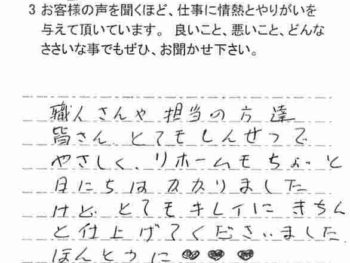 3 お客様の声を聞くほど、仕事に情熱とやりがいを
与えて頂いています。良いこと、悪いこと、どんな
ささいな事でもぜひ、お聞かせ下さい。
職人さんや担当の方達
皆さんとてもしんせつで
やさしく、リホームもちょっと
日にちはかかりました
けど、とてもキレイにきちん
と仕上げてくださいました。
ほんとうに♥♥♥